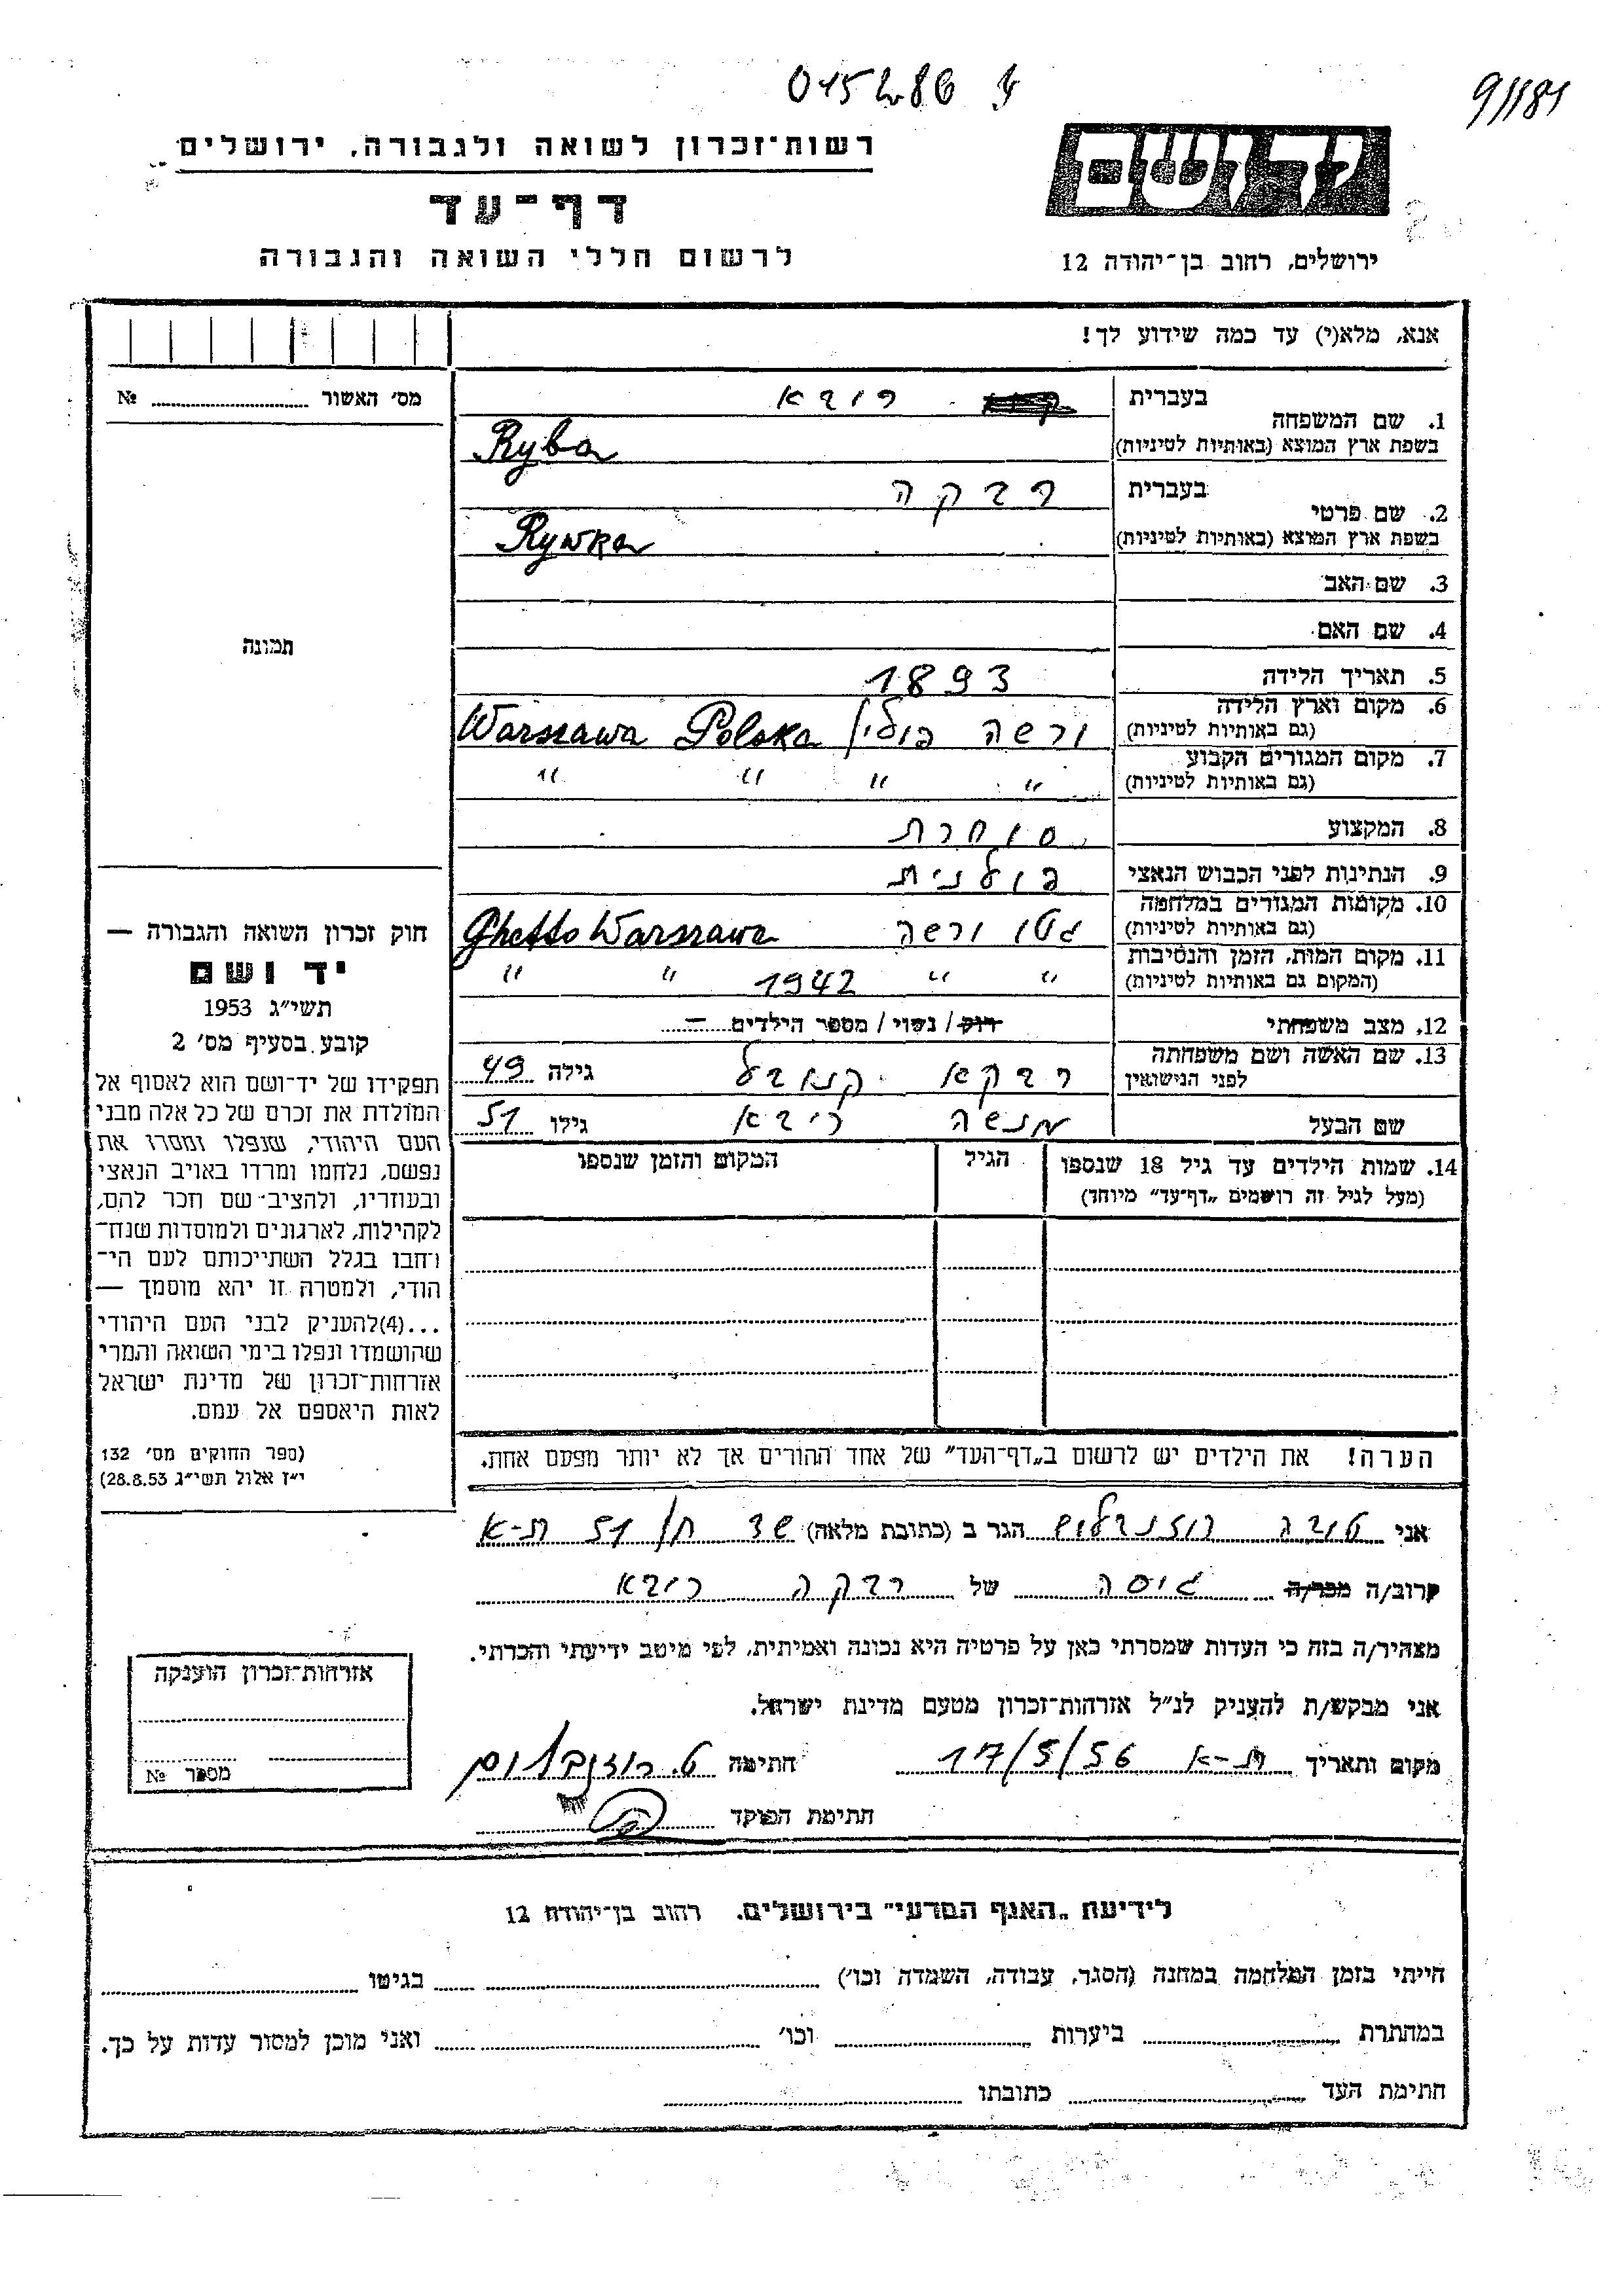 015286
9/1181
רשות־זכרון לשואה ולגבורה, ירושלים
דף־עד
לרשום חללי השואה והגבורה
יד ושם
ירושלים, רחוב בן־יהודה 12
אנא, מלא(י) עד כמה שידוע לך!
מס׳ האשור № 
1. שם המשפחה
בעברית ריבא
בשפת ארץ המוצא (באותיות לטיניות) Ryba
2. שם פרטי
בעברית רבקה
בשפת ארץ המוצא (באותיות לטיניות) Rywka
3. שם האב
4. שם האם
תמונה
5. תאריך הלידה 1893
6. מקום וארץ הלידה (גם באותיות לטיניות) ורשה פולין Warszawa Polska
7. מקום המגורים הקבוע (גם באותיות לטיניות) " " " "
8. המקצוע סוחרת
9. הנתינות לפני הכבוש הנאצי פולנית
10. מקומות המגורים במלחמה (גם באותיות לטיניות) גטו ורשה Ghetto Warszawa
11. מקום המות, הזמן והנסיבות (המקום גם באותיות לטיניות) " " 1942 " "
12. מצב משפחתי רוק / נשוי / מספר הילדים –
13. שם האשה ושם משפחתה לפני הנישואין רבקא גילה 49
שם הבעל מנשה ריבא גילו 51
14. שמות הילדים עד גיל 18 שנספו
(מעל לגיל זה רושמים „דף־עד" מיוחד)
הגיל
המקום והזמן שנספו
חוק זכרון השואה והגבורה —
יד ושם
תשי״ג 1953
קובע בסעיף מס׳ 2
תפקידו של יד־ושם הוא לאסוף אל
המולדת את זכרם של כל אלה מבני
העם היהודי, שנפלו ומסרו את
נפשם, נלחמו ומרדו באויב הנאצי
ובעוזריו, ולהציב שם וזכר להם,
לקהילות, לארגונים ולמוסדות שנח־
רבו בגלל השתייכותם לעם הי־
הודי, ולמטרה זו יהא מוסמך —
...(4)להעניק לבני העם היהודי
שהושמדו ונפלו בימי השואה והמרי
אזרחות־זכרון של מדינת ישראל
לאות היאספם אל עמם.
(ספר החוקים מס׳ 132
י״ז אלול תשי״ג 28.8.53)
הערה! את הילדים יש לרשום ב„דף־העד" של אחד ההורים אך לא יותר מפעם אחת.
אני טובה רוזנבלום הגר ב (כתובת מלאה) 51 ת-א
קרוב/ה מכר/ה גיסה של רבקה ריבא
מצהיר/ה בזה כי העדות שמסרתי כאן על פרטיה היא נכונה ואמיתית, לפי מיטב ידיעתי והכרתי.
אני מבקש/ת להעניק לנ״ל אזרחות־זכרון מטעם מדינת ישראל.
מקום ותאריך ת-א 17/5/56 חתימה ט. רוזנבלום
חתימת הפוקד
אזרחות־זכרון הוענקה
מספר №
לידיעת „האגף המדעי" בירושלים. רחוב בן־יהודה 12
הייתי בזמן המלחמה במחנה (הסגר, עבודה, השמדה וכו׳) בגיטו
במחתרת ביערות וכו׳ ואני מוכן למסור עדות על כך.
חתימת העד כתובתו